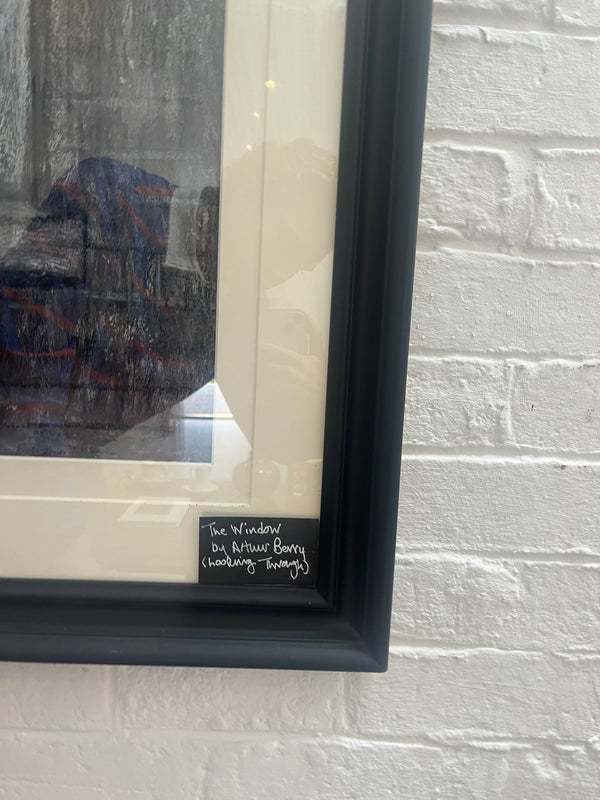 The Window
by Arthur Berry
(Looking Through)